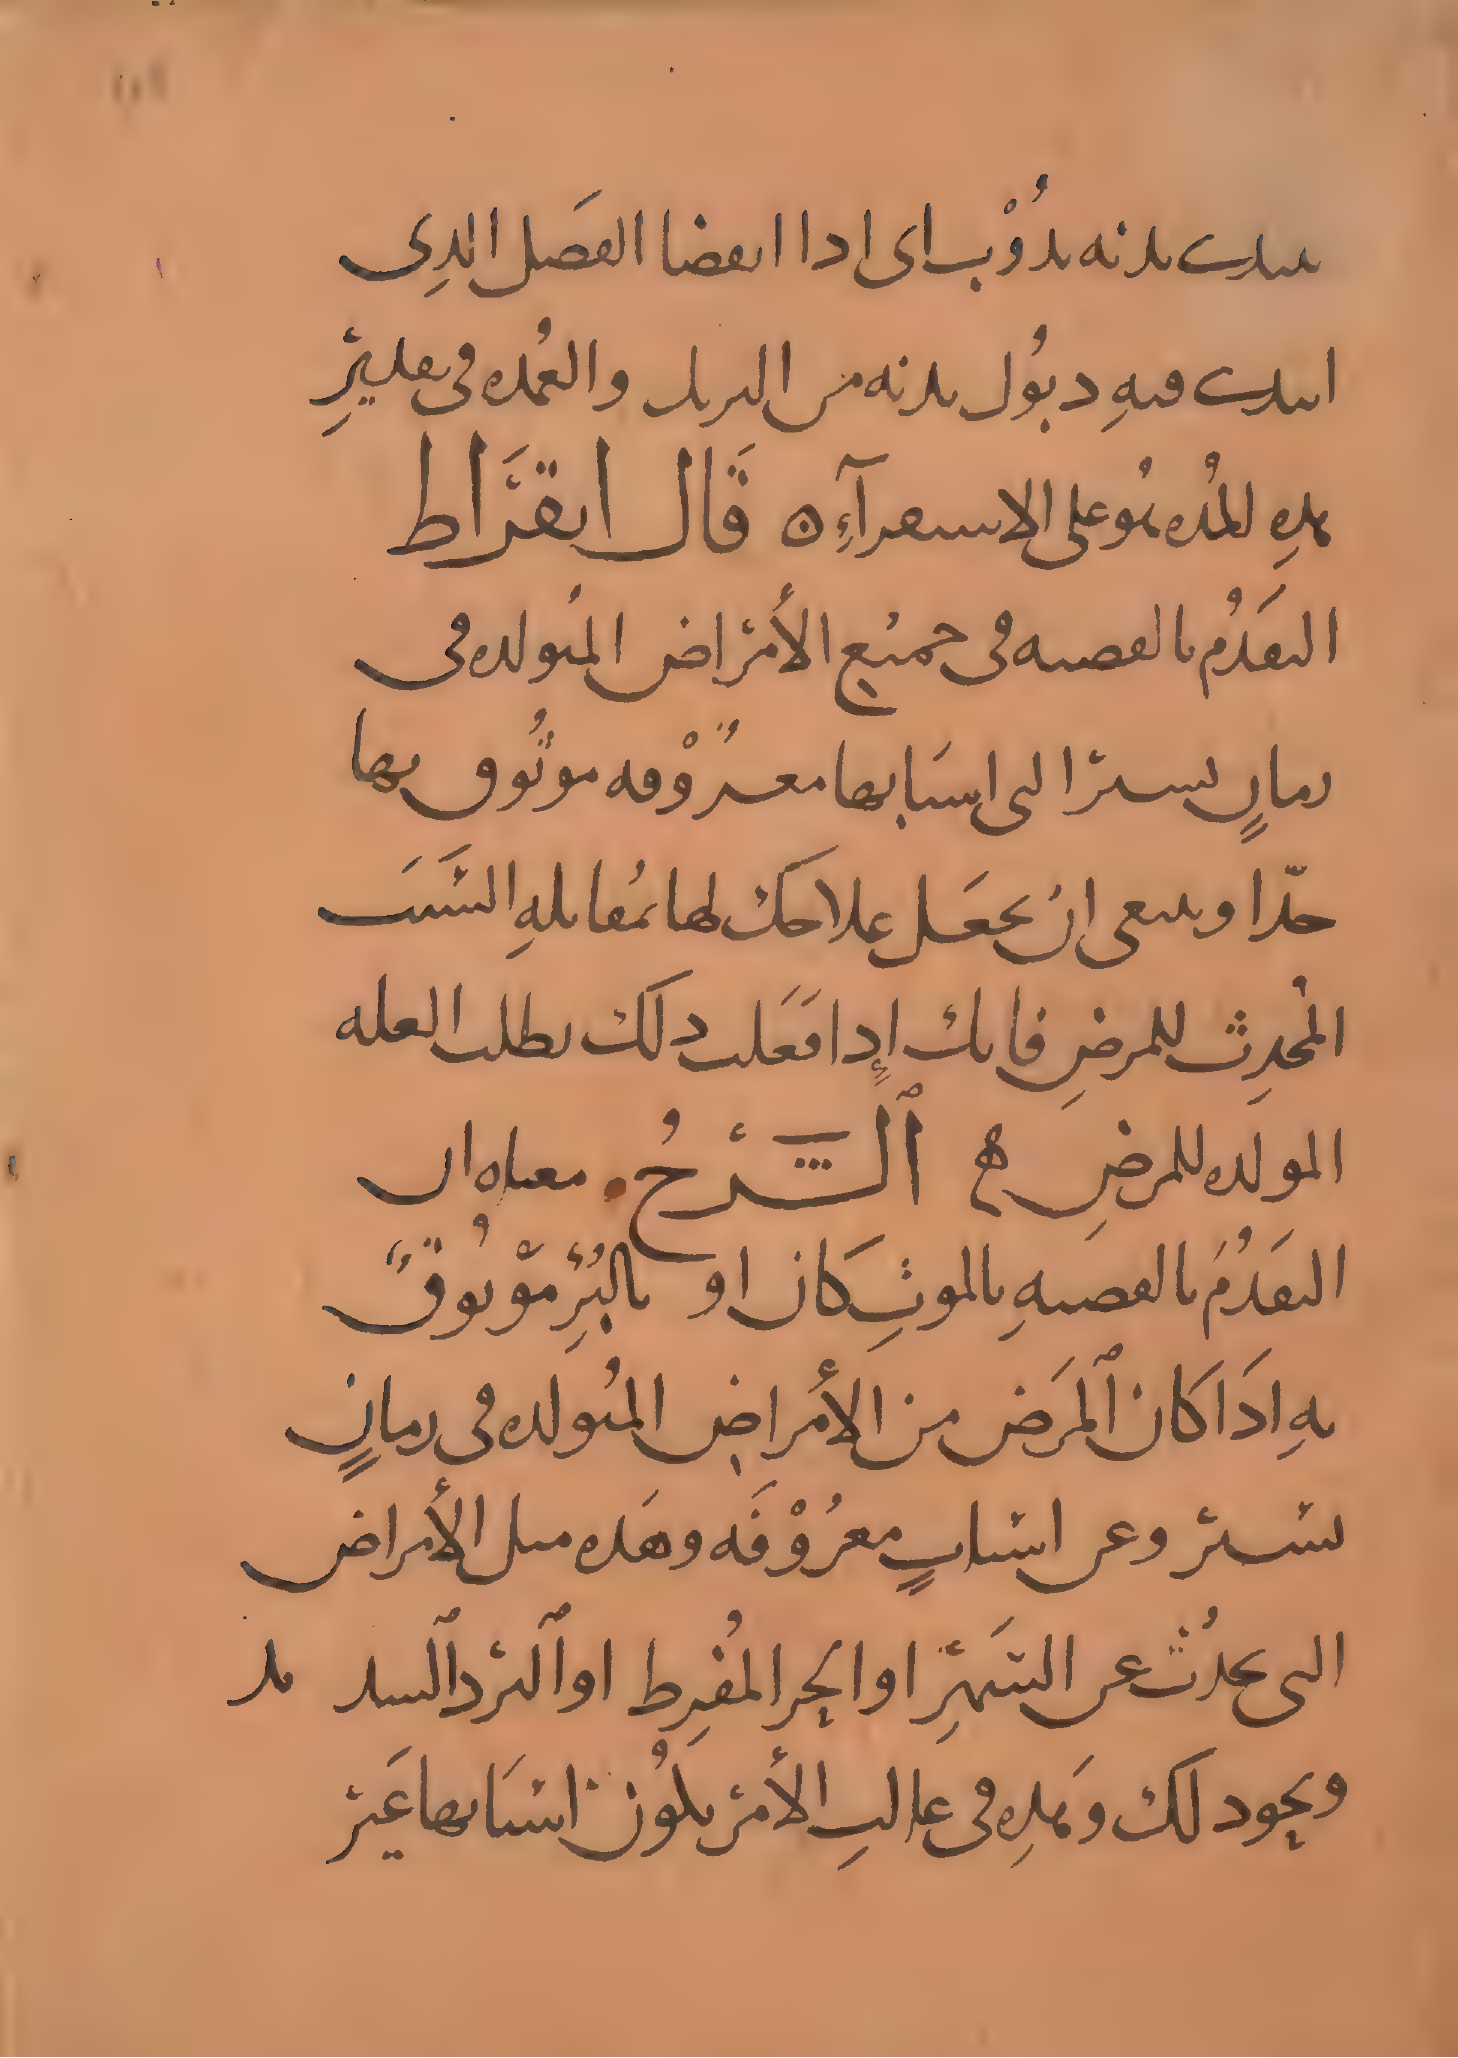 يبتدئ بدنه يذُوْب اى اذا انقضا الفصَل الذِى
ابتدئ فيهِ ذبُول بدنه من البرئ والعُمده فى تقديرِ
هذِه المُده هُو على الاستقرآءِ ه قَال ابقَراط
التقَدُم بالقضيه فى جميع الأمراض المُتولده فى
زمانٍ يسير التى اسبَابها معرُوْفه موثُوق بها
جدّا وينبغى ان تجعَل علاجَك لها بمُقابلهِ السَبَب
المُحدِث للمرضِ فانك إذا فَعَلت ذلَك بطلت العله
المولده للمرضِ ه ٱلشَرْحُ معناه ان
التقَدُمَ بالقضيهِ بالموتِ كَان او بالبُرْءِ مَوْثوُقٌ
بهِ اذَا كَان ٱلمرَض من الأمراض المُتولده فى زمانٍ
يسير وعن اسبابٍ معرُوْفَه وهَذه مثل الأمراض
التى تحدُث عن السَهرِ او الحر المُفرِط او ٱلبرد ٱلشديد
ونحو ذلَك وهَذِه فى غالبِ الأمر يكُون اسبَابها غَير